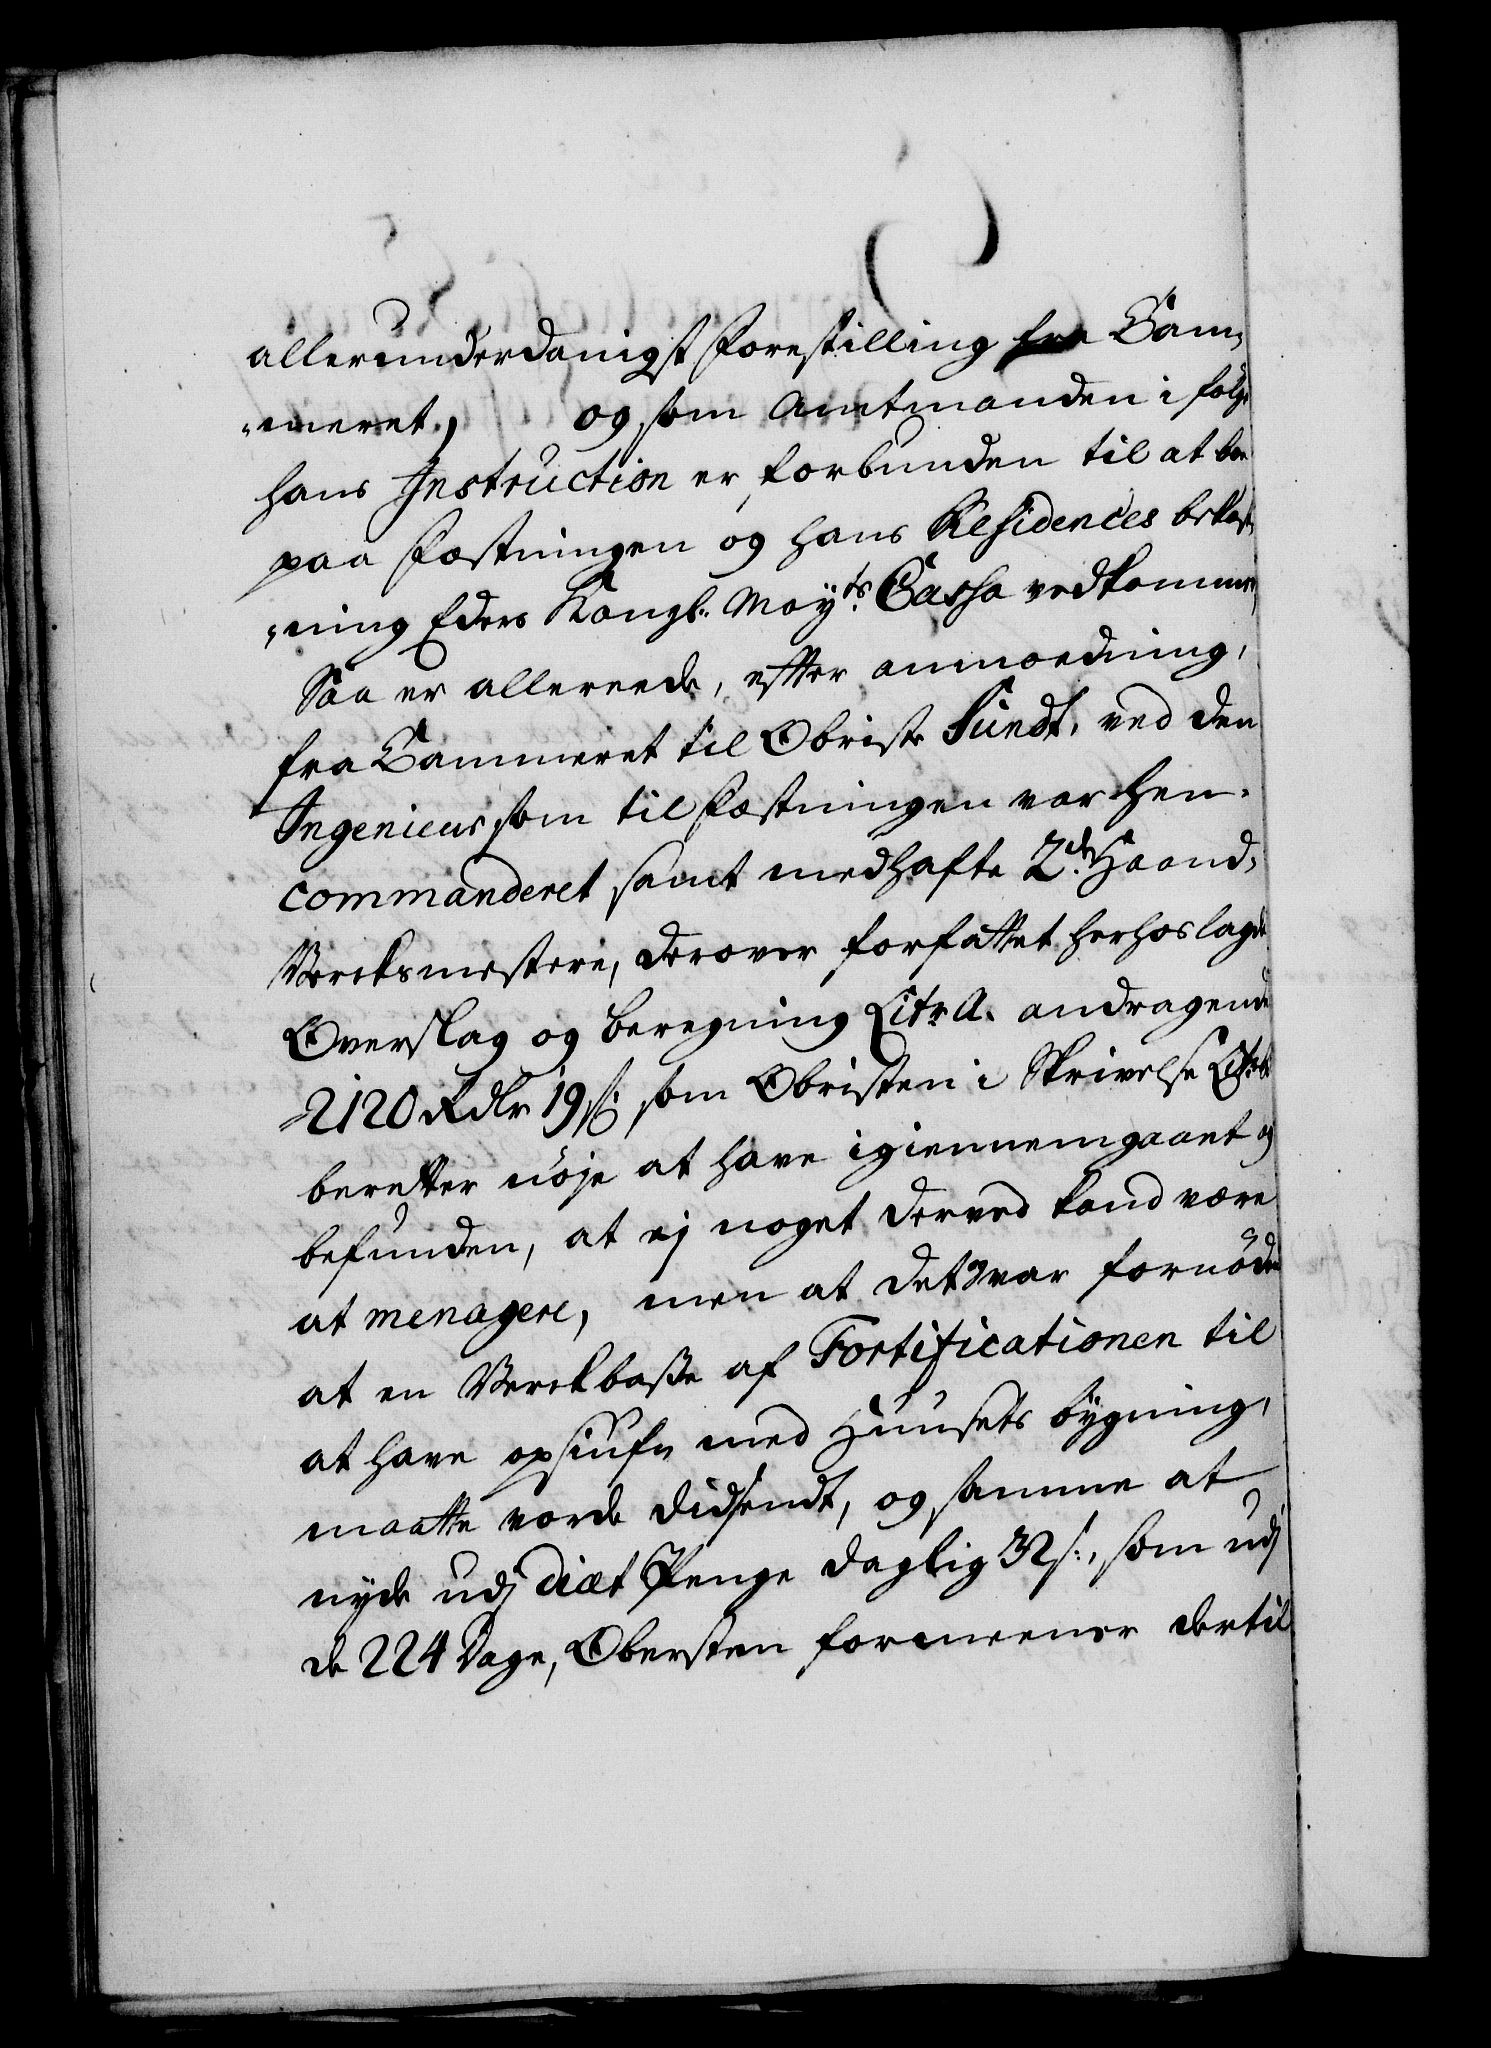 allerunderdanigst forestilling fra Cam-
-meret, og som Amtmanden i følge
hans Instruction er forbunden til at boe
paa Fæstningen og hans Residences bekost-
-ning Eders Kongl: May:ts Cassa vedkommer,
Saa er allereede, efter anmoedning,
fra Cammeret til Obriste Sundt, ved den
Ingenieur som til Fæstningen var hen-
commanderet samt medhafte 2de Haand-
Verksmestere, derover forfattet herhoslagde
Overslag og beregning Litr A. andragende
2120 Rdlr 19 s: som Obristen i Skrivelse Litr B
beretter nøje at have igiennemgaaet og
befunden, at ej noget derved kand være
at menagere, men at det var fornøden
at en Verckbasse af Fortificationen til
at have opsiufn med Huusets bygning,
maatte vorde didsendt, og samme at
nyde udj diæt Penge daglig 32 s:, som udj
de 224 Dage, Obersten formeener dertil